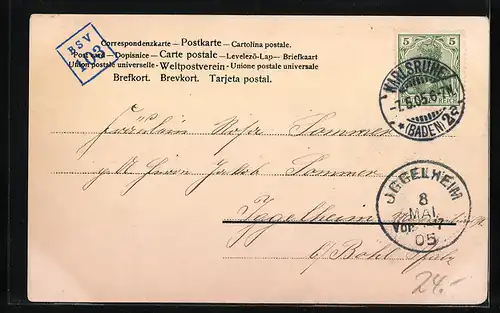 BSV
103
Correspondenzkarte — Postkarte — Cartolina postale.
Post card — Dopisnice — Carte postale — Levelező-Lap — Briefkaart
Union postale universelle — Weltpostverein — Unione postale universale
Brefkort. Brevkort. Tarjeta postal.
5 5
KARLSRUHE
7.5.05.6-7N.
* (BADEN) 2c
Fräulein Rosa Sommer
Herrn Jakob Sommer
Iggelheim
b/Böhl Pfalz
IGGELHEIM
8
MAI.
VOR.
05
24.-